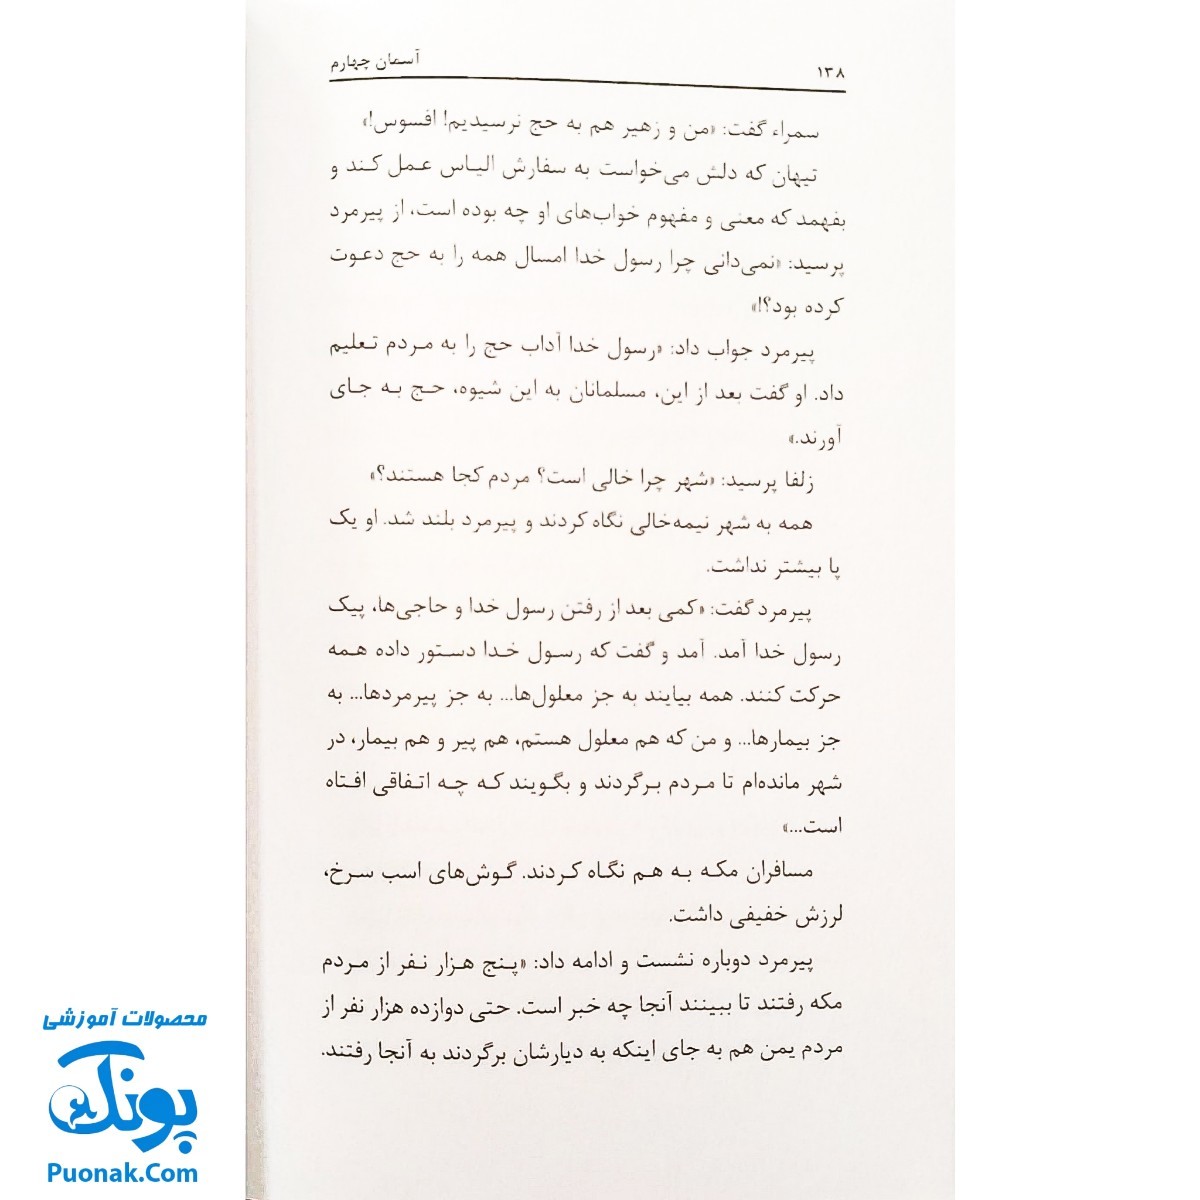 ۱۳۸
آسمان چهارم
سمراء گفت: «من و زهیر هم به حج نرسیدیم! افسوس!»
تیهان که دلش می‌خواست به سفارش الیاس عمل کند و
بفهمد که معنی و مفهوم خواب‌های او چه بوده است، از پیرمرد
پرسید: «نمی‌دانی چرا رسول خدا امسال همه را به حج دعوت
کرده بود؟!»
پیرمرد جواب داد: «رسول خدا آداب حج را به مردم تعلیم
داد. او گفت بعد از این، مسلمانان به این شیوه، حج به جای
آورند.»
زلفا پرسید: «شهر چرا خالی است؟ مردم کجا هستند؟»
همه به شهر نیمه‌خالی نگاه کردند و پیرمرد بلند شد. او یک
پا بیشتر نداشت.
پیرمرد گفت: «کمی بعد از رفتن رسول خدا و حاجی‌ها، پیک
رسول خدا آمد. آمد و گفت که رسول خدا دستور داده همه
حرکت کنند. همه بیایند به جز معلول‌ها... به جز پیرمردها... به
جز بیمارها... و من که هم معلول هستم، هم پیر و هم بیمار، در
شهر مانده‌ام تا مردم برگردند و بگویند که چه اتفاقی افتاه
است...»
مسافران مکه به هم نگاه کردند. گوش‌های اسب سرخ،
لرزش خفیفی داشت.
پیرمرد دوباره نشست و ادامه داد: «پنج هزار نفر از مردم
مکه رفتند تا ببینند آنجا چه خبر است. حتی دوازده هزار نفر از
مردم یمن هم به جای اینکه به دیارشان برگردند به آنجا رفتند.
محصولات آموزشی
پونک
Puonak.Com